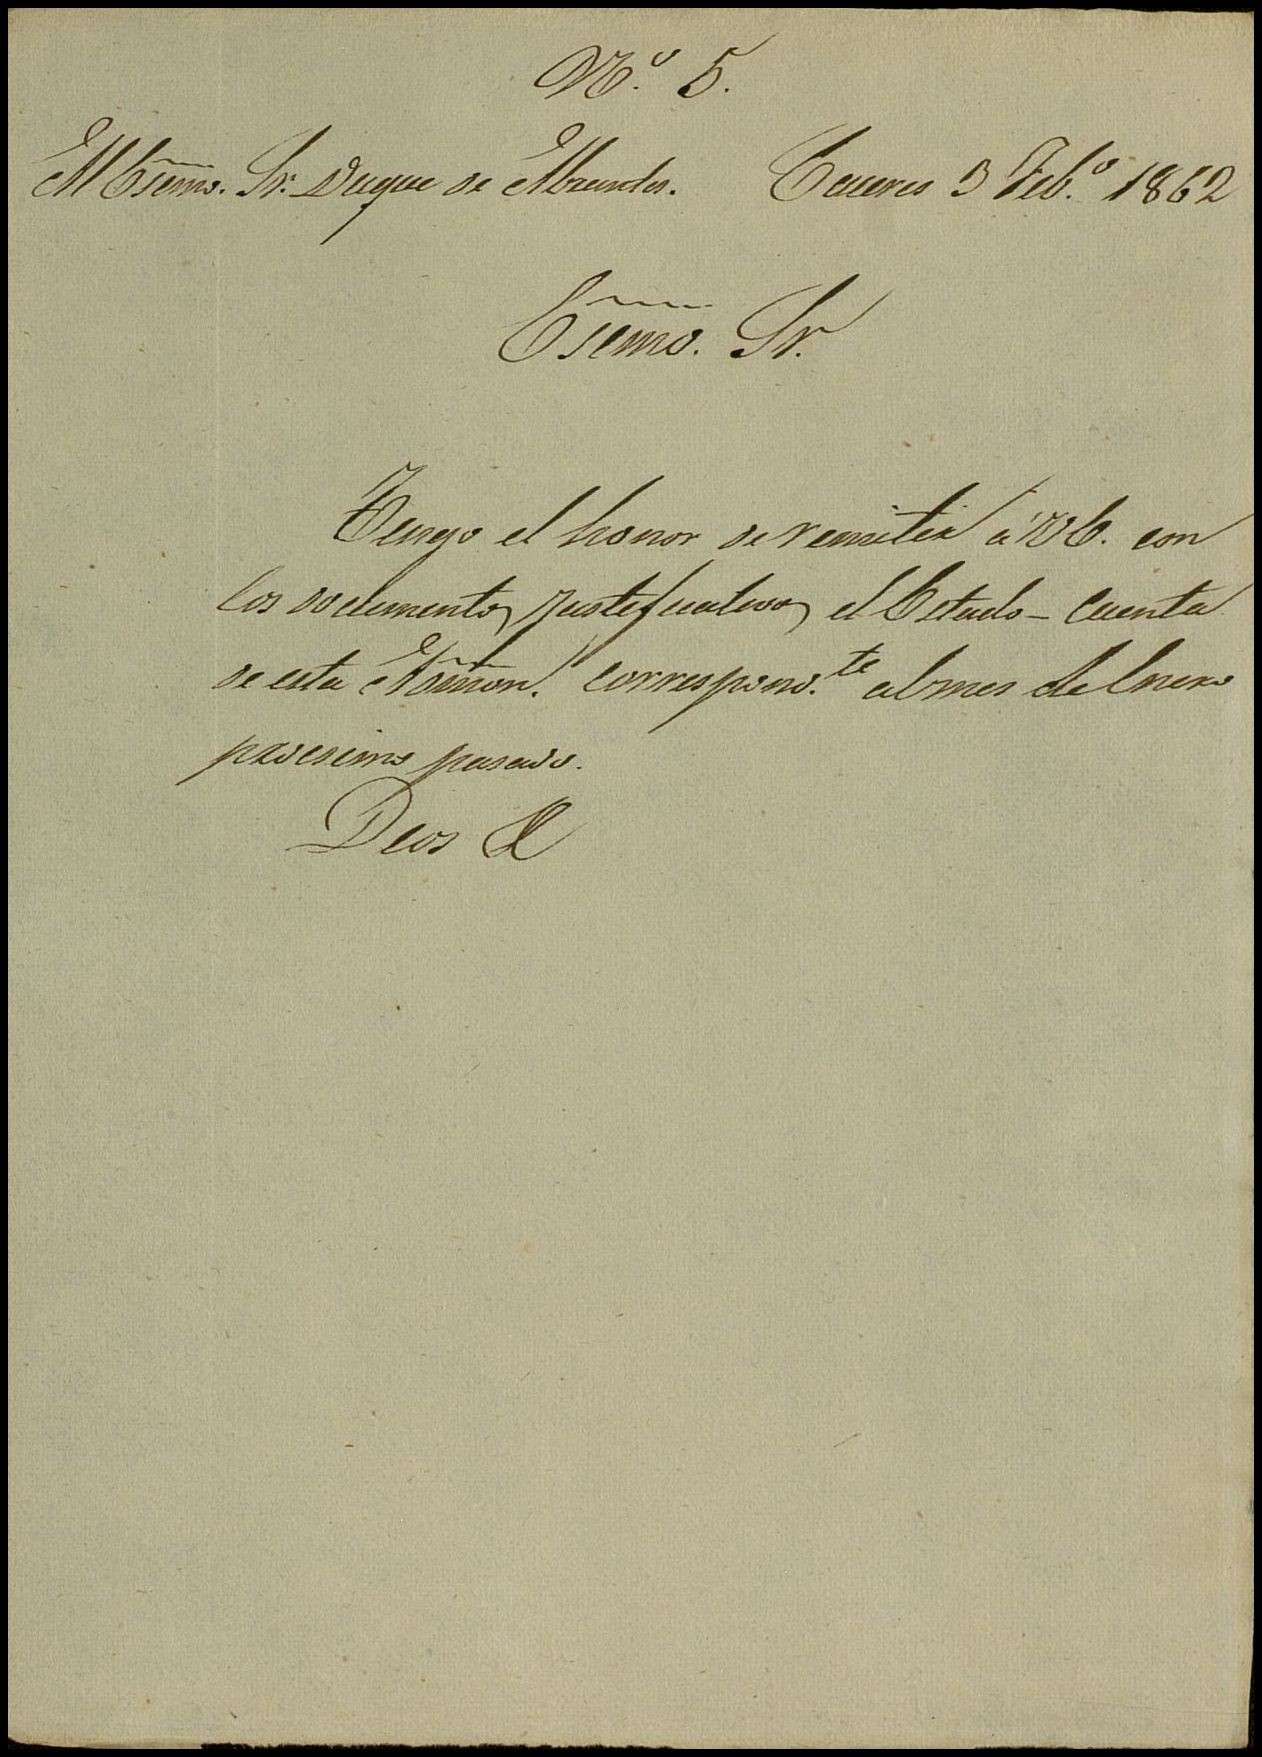 Nº. 5.
Al Esemo. Sr. Duque de Abrantes. Caceres 3 Feb.º 1862
Esemo. Sr.
Tengo el honor de remitir á V.E. con
los documentos justificativos el Estado-Cuenta
de esta Admon. correspond.te al mes de Enero
procsimo pasado.
Dios &